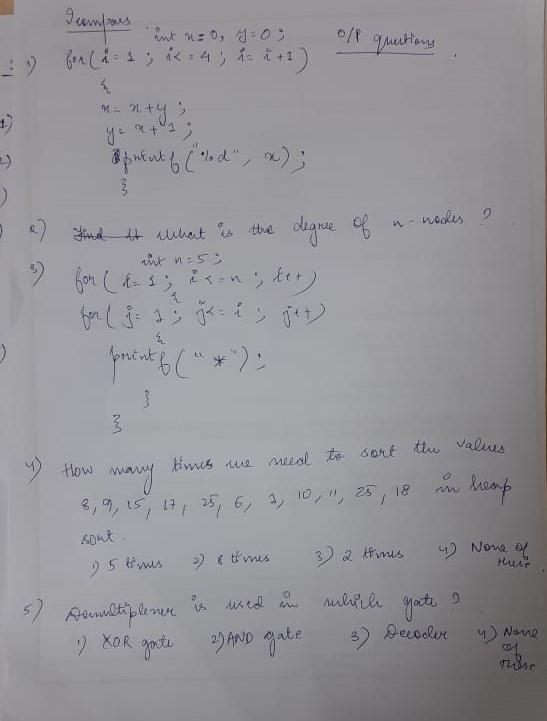 int x=0, y=0;
O/P questions
1) for(i=1; i<=4; i=i+1)
{
x=x+y;
y=x+1;
printf("%d", x);
}
2) What is the degree of n-nodes?
int n=5;
3) for(i=1; i<=n; i++)
{
for(j=1; j<=i; j++)
{
printf("*");
}
}
4) How many times we need to sort the values
8, 9, 15, 17, 25, 6, 1, 10, 11, 25, 18 in heap
sort.
1) 5 times 2) 8 times 3) 2 times 4) None of
these
5) Demultiplexer is used in which gate?
1) XOR gate 2) AND gate 3) Decoder 4) None
of
these